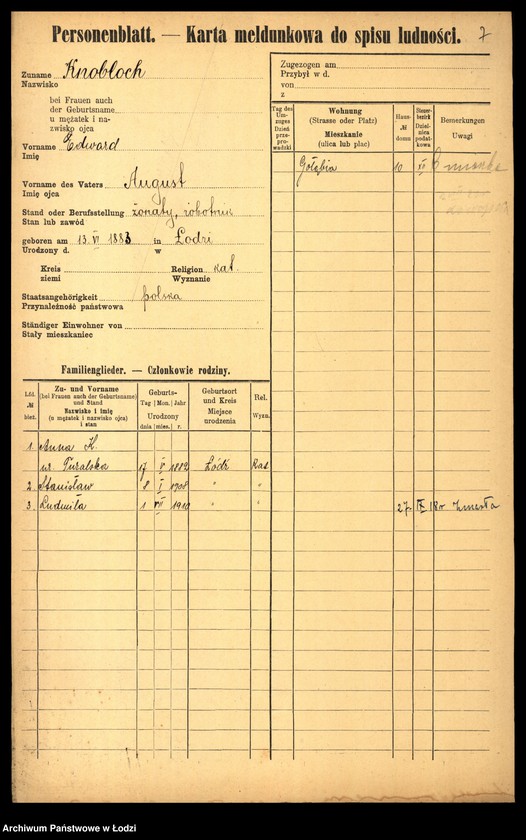 Personenblatt. — Karta meldunkowa do spisu ludności. 7
Zuname Knobloch
Nazwisko
bei Frauen auch
der Geburtsname
u mężatek i na-
zwisko ojca
Vorname Edward
Imię
Vorname des Vaters August
Imię ojca
Stand oder Berufsstellung żonaty, robotnik
Stan lub zawód
geboren am 13 VI 1883 in Łodzi
Urodzony d. w
Kreis Religion kat.
ziemi Wyznanie
Staatsangehörigkeit polska
Przynależność państwowa
Ständiger Einwohner von
Stały mieszkaniec
Zugezogen am
Przybył w d.
von
z
Tag des Um-zuges Dzień prze-prowadzki
Wohnung
(Strasse oder Platz)
Mieszkanie
(ulica lub plac)
Haus-
№
domu
Steuer-bezirk Dziel-nica podat-kowa
Bemerkungen
Uwagi
Gołębia 10 XI 6
Familienglieder. — Członkowie rodziny.
Lfd.
№
bież.
Zu- und Vorname
(bei Frauen auch der Geburtsname)
und Stand
Nazwisko i imię
(u mężatek i nazwisko ojca)
i stan
Geburts-
Tag Mon. Jahr
Urodzony
dnia mies. r.
Geburtsort
und Kreis
Miejsce
urodzenia
Rel.
Wyzn.
1. Anna K.
ur. Turalska 17 V 1882 Łódź Kat
2. Stanisław 8 I 1908 " "
3. Ludmiła 1 VII 1910 " " 27 IX 18 r zmarła
Archiwum Państwowe w Łodzi